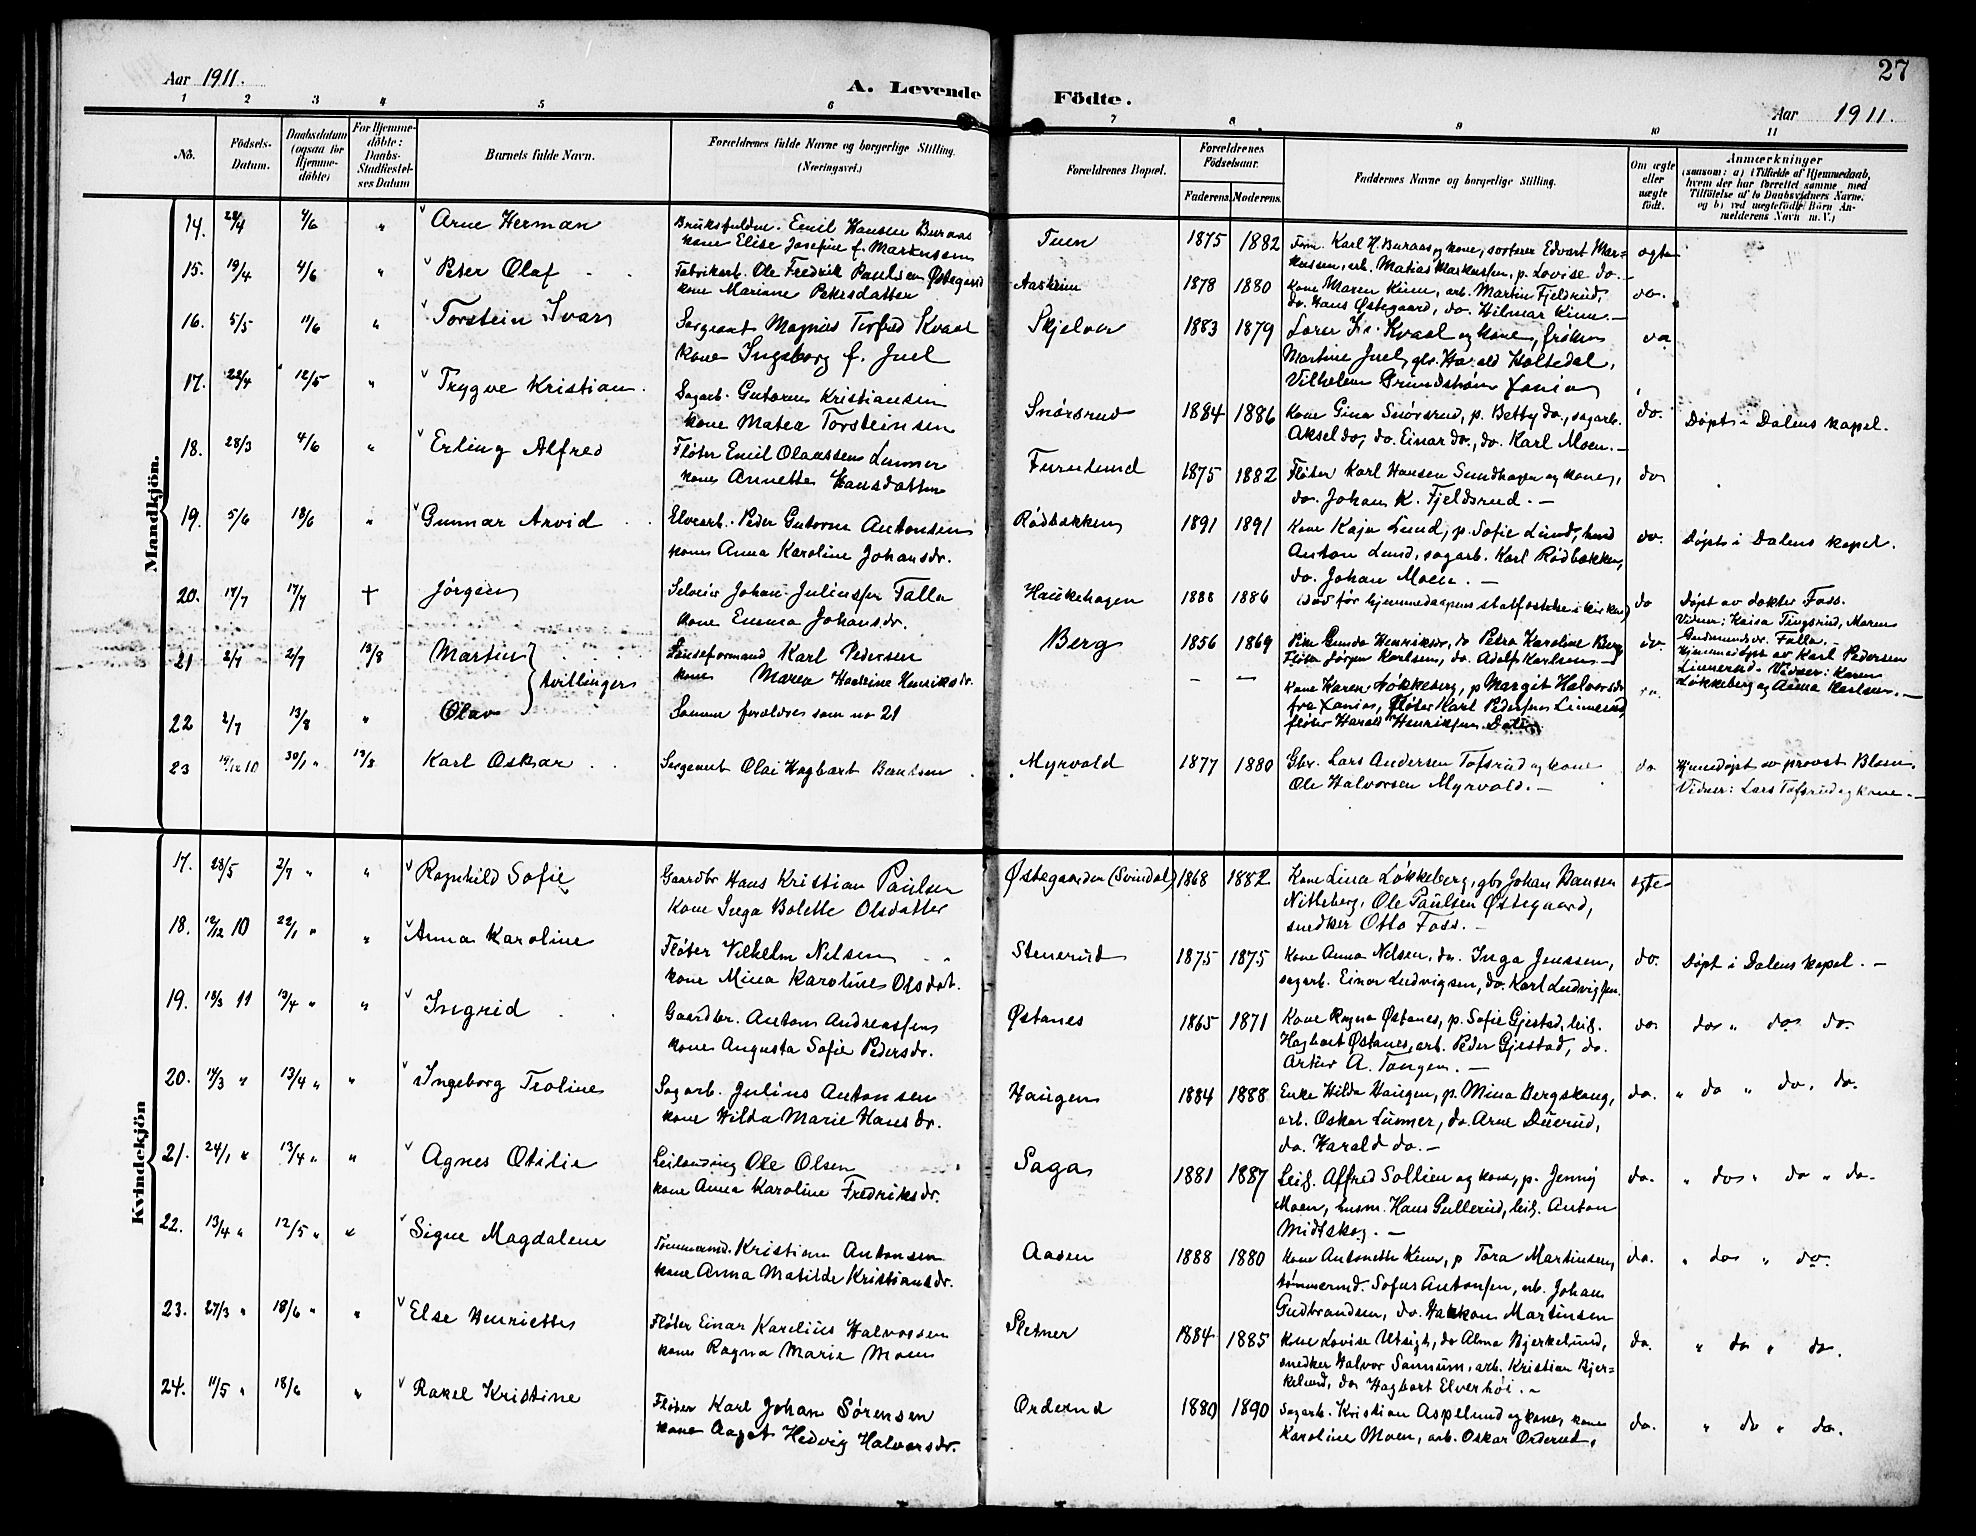 27
Aar 1911.
A. Levende Födte.
Aar 1911.
1 2 3 4 5 6 7 8 9 10 11
No.
Födsels-Datum.
Daabsdatum (ogsaa for Hjemmedöbte)
For Hjemmedöbte: Daabs-Stadfæstelses Datum
Barnets fulde Navn.
Forældrenes fulde Navne og borgerlige Stilling. (Næringsvei.)
Forældrenes Bopæl.
Forældrenes Födselsaar.
Faderens Moderens
Faddernes Navne og borgerlige Stilling.
Om ægte eller uægte födt.
Anmærkninger
(saasom: a) i Tilfælde af Hjemmedaab,
hvem der har forrettet samme med
Tilföielse af to Daabsvidners Navne;
og b) ved uægtefödte Börn An-
melderens Navn m. V.)
Mandkjön.
14. 28/4 4/6 " Arne Herman
Bruksfuldm. Emil Hansen Buraas
kone Elise Josefine f. Markussen
Tuen 1875 1882
Form. Karl H. Buraas og kone, sorterer Edvart Mar-
kussen, arb. Matias Markussen, p. Lovise do. -
ægte
15. 19/4 4/6 " Peter Olaf
Fabrikarb. Ole Fredrik Paulsen Østegaard
kone Mariane Petersdatter
Aaskrim 1878 1880
Kone Maren Kinn, arb. Martin Fjeldrud,
do. Hans Østegaard, do. Hilmar Kinn. -
do.
16. 5/5 11/6 " Torstein Ivar
Sergeant Magnus Torfred Kvaal
kone Ingeborg f. Juel
Skjelver 1883 1879
Lærer Kr. Kvaal og kone, frøken
Martine Juel, gbr. Harald Holtedal,
Vilhelm Grundstrøm Xania
do
17. 22/4 12/5 " Trygve Kristian
Sagarb. Gutorm Kristiansen
kone Matea Torsteinsen
Snørsrud 1884 1886
Kone Gina Snørsrud, p. Betty do, sagarb.
Aksel do, do. Einar do., do. Karl Moen. -
do.
Døpt i Dalens kapel.
18. 28/3 4/6 " Erling Alfred
Fløter Emil Olaussen Lunner
kone Annette Hansdatter
Furulund 1875 1882
Fløter Karl Hansen Sundhagen og kone,
do. Johan K. Fjeldsrud. -
do
19. 5/6 18/6 " Gunnar Arvid
Elvearb. Peder Gutorm Antonsen
kone Anna Karoline Johansdr.
Rødbakken 1891 1891
Kone Kaja Lund, p. Sofie Lund,
Anton Lund, sagarb. Karl Rødbakken,
do. Johan Moen. -
do.
Døpt i Dalens kapel.
20. 17/7 17/7 † Jørgen
Selveier Johan Juliussen Falla
kone Emma Johansdr.
Haukehagen 1888 1886
(død før hjemmedaapens statfæstelse i kirken)
do
Døpt av doktor Foss.
Vidner: Kaisa Tingsrud, Maren
Gudmundsdr. Falla. -
21 2/7 2/7 13/8 Martin } tvillinger
Lænseformand Karl Pedersen
kone Marea Hedvine Henriksdr.
Berg 1856 1869
Pike Gunda Henriksdr, do Petra Karoline Berg
Fløter Jørgen Karlsen, do. Adolf Karlsen -
do.
Hjemmedøpt av Karl Pedersen
Linnerud. Vidner: Karen
Løkkeberg og Anna Karlsen. -
22 2/7 13/8 " Olav
Samme forældre som no 21
- -
Kone Karen Løkkeberg, p Margit Halvorsdr
fra Xania, fløter Karl Pedersen Linnerud,
fløter Harald Henriksen Dalen
23 14/12 10 30/1 " 13/8 Karl Oskar
Sergeant Olai Hagbart Berntsen
Myrvold 1877 1880
Gbr. Lars Andersen Tofsrud og kone
Ole Halvorsen Myrvold. -
do
Hjemedøpt av provst Blom.
Vidner: Lars Tofsrud og kone. -
Kvindekjön
17. 28/5 2/7 " " Ragnhild Sofie
Gaardbr Hans Kristian Paulsen
kone Inga Bolette Olsdatter
Østegaarden (Svindal) 1868 1882
Kone Lina Løkkeberg, gbr Johan Hansen
Nitteberg, Ole Paulsen Østegaard,
snedker Otto Foss. -
ægte
18. 12/12 10 22/1 " " Anna Karoline
Fløter Vilhelm Nilsen
kone Mina Karoline Olsdat.
Stenerud 1875 1875
Kone Anna Nilsen, do. Inga Jenssen,
sagarb. Einar Ludvigsen, do. Karl Ludvigsen.
do.
Døpt i Dalens kapel. -
19. 18/3 11 13/4 " " Ingrid
Gaardbr. Anton Andreassen
kone Augusta Sofie Pedersdr.
Østanes 1865 1871
Kone Ragna Østanes, p. Sofie Gjestad, leil.
Hagbart Østanes, arb. Peder Gjestad, do.
Artur A. Tangen. -
do
do " do do
20. 14/3 " 13/4 " " Ingeborg Teoline
Sagarb. Julius Antonsen
kone Hilda Marie Hansdr.
Haugen 1884 1888
Enke Hilda Haugen, p. Mina Bergskaug,
arb. Oskar Lunner, do. Arne Duerud,
do. Harald do. -
do.
" do " do. do.
21. 24/1 " 13/4 " " Agnes Otilie
Leilending Ole Olsen
kone Anna Karoline Fredriksdr.
Saga 1881 1887
Leil. Alfred Sollien og kone, p. Jenny
Moen, husm. Hans Gullerud, leil. Anton
Midtskog. -
do.
" do " do " do.
22. 13/4 " 12/5 " " Signe Magdalene
Tømmermd. Kristian Antonsen
kone Anna Matilde Kristiansdr.
Aasen 1888 1880
Kone Antonette Kinn, p Tora Martinsen,
tømmermd. Sofus Antonsen, arb. Johan
Gudbrandsen, do. Haakon Martinsen
do.
" do " do.
23. 27/3 " 18/6 " " Else Henriette
Fløter Einar Karelius Halvorsen
kone Ragna Marie Moen
Sletner 1884 1885
Kone Lovise Utsigt, do Alma Bjerkelund,
snedker Halvor Sannum, arb. Kristian Bjer-
kelund, do Hagbart Elverhøi. -
do.
" do " do.
24. 11/5 " 18/6 " Rakel Kristine
Fløter Karl Johan Sørensen
kone Aagot Hedvig Halvorsdr.
Orderud 1880 1890
Sagarb. Kristian Aspelund og kone, kone
Karoline Moen, arb. Oskar Orderud,
do.
" do " do.